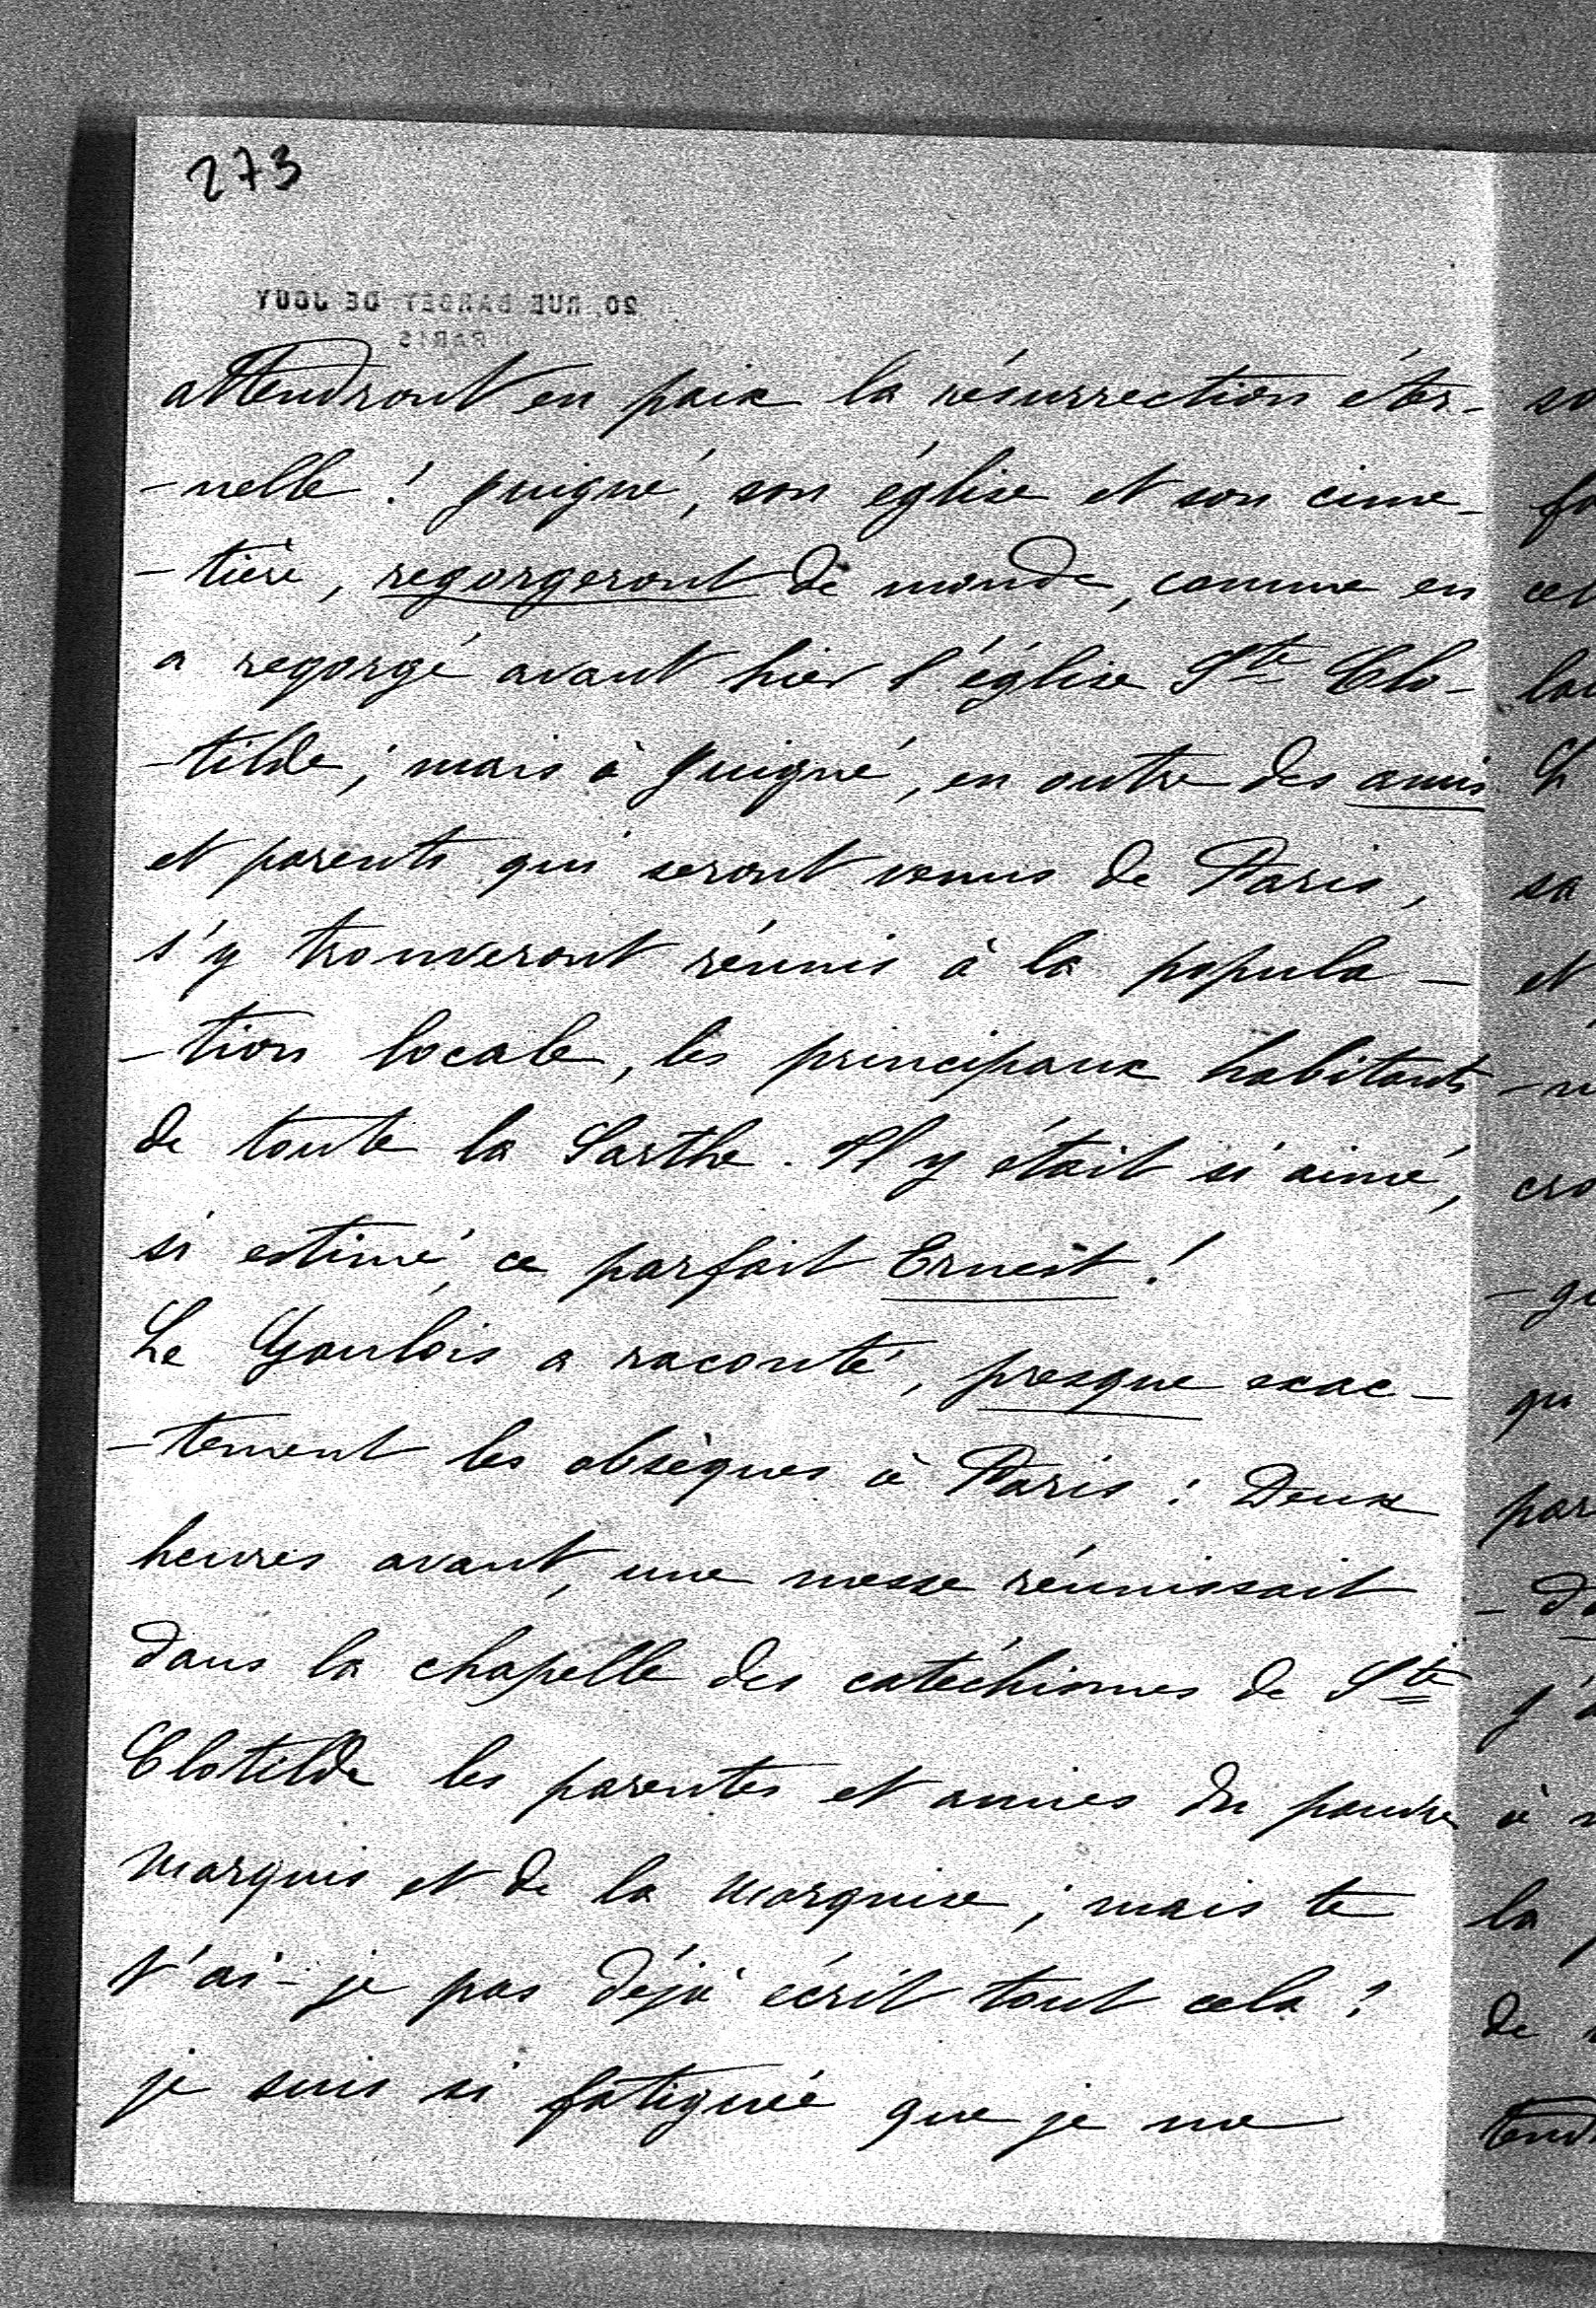 273
20, RUE BARBEY DE JOUY
PARIS
attendront en paix la résurrection éter-
-nelle ! Juigné, son église et son cime-
-tière, regorgeront de monde, comme en
a regorgé avant hier l'église Ste Clo-
-tilde ; mais à Juigné, en outre des amis
et parents qui seront venus de Paris,
s'y trouveront réunis à la popula-
-tion locale, les principaux habitants
de toute la Sarthe. Il y était si aimé,
si estimé, ce parfait Ernest !
Le Gaulois a raconté, presque exac-
-tement les obsèques à Paris : Deux
heures avant, une messe réunissait
dans la chapelle des catéchismes de Ste
Clotilde les parentes et amies du pauvre
marquis et de la marquise ; mais te
t'ai-je pas déjà écrit tout cela ?
je suis si fatiguée que je me